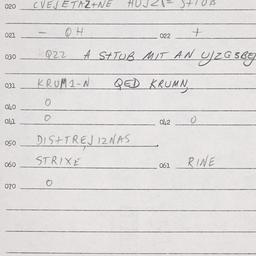 020 CVEJETAZ+NE
021 - OH 022 +
030 022 A S+TUB MIT AN
031 KRUM1-N QED KRUMN
040 0
041 0 042 0
050 DIS+TREJ12NAS
060 STRIXE 061 RINE
070 0